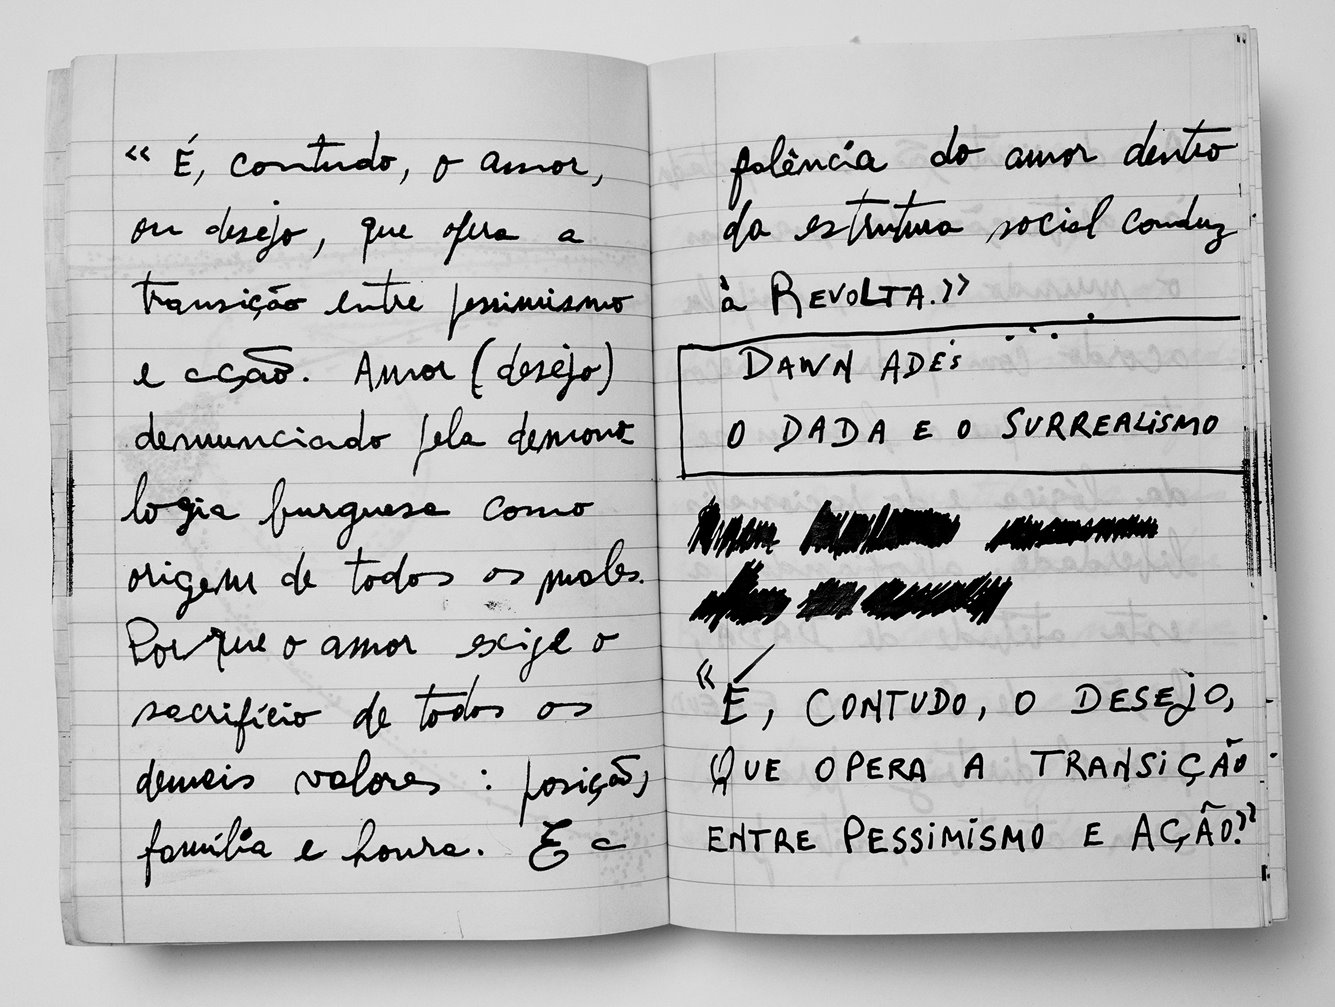 « É, contudo, o amor,
ou desejo, que opera a
transição entre pessimismo
e acção. Amor (desejo)
denunciado pela demono
logia burguesa como
origem de todos os males.
Porque o amor exige o
sacrifício de todos os
demais valores : posição,
família e honra. E a
falência do amor dentro
da estrutura social conduz
à REVOLTA.»
DAWN ADES
O DADA E O SURREALISMO
«É, CONTUDO, O DESEJO,
QUE OPERA A TRANSIÇÃO
ENTRE PESSIMISMO E AÇÃO.»